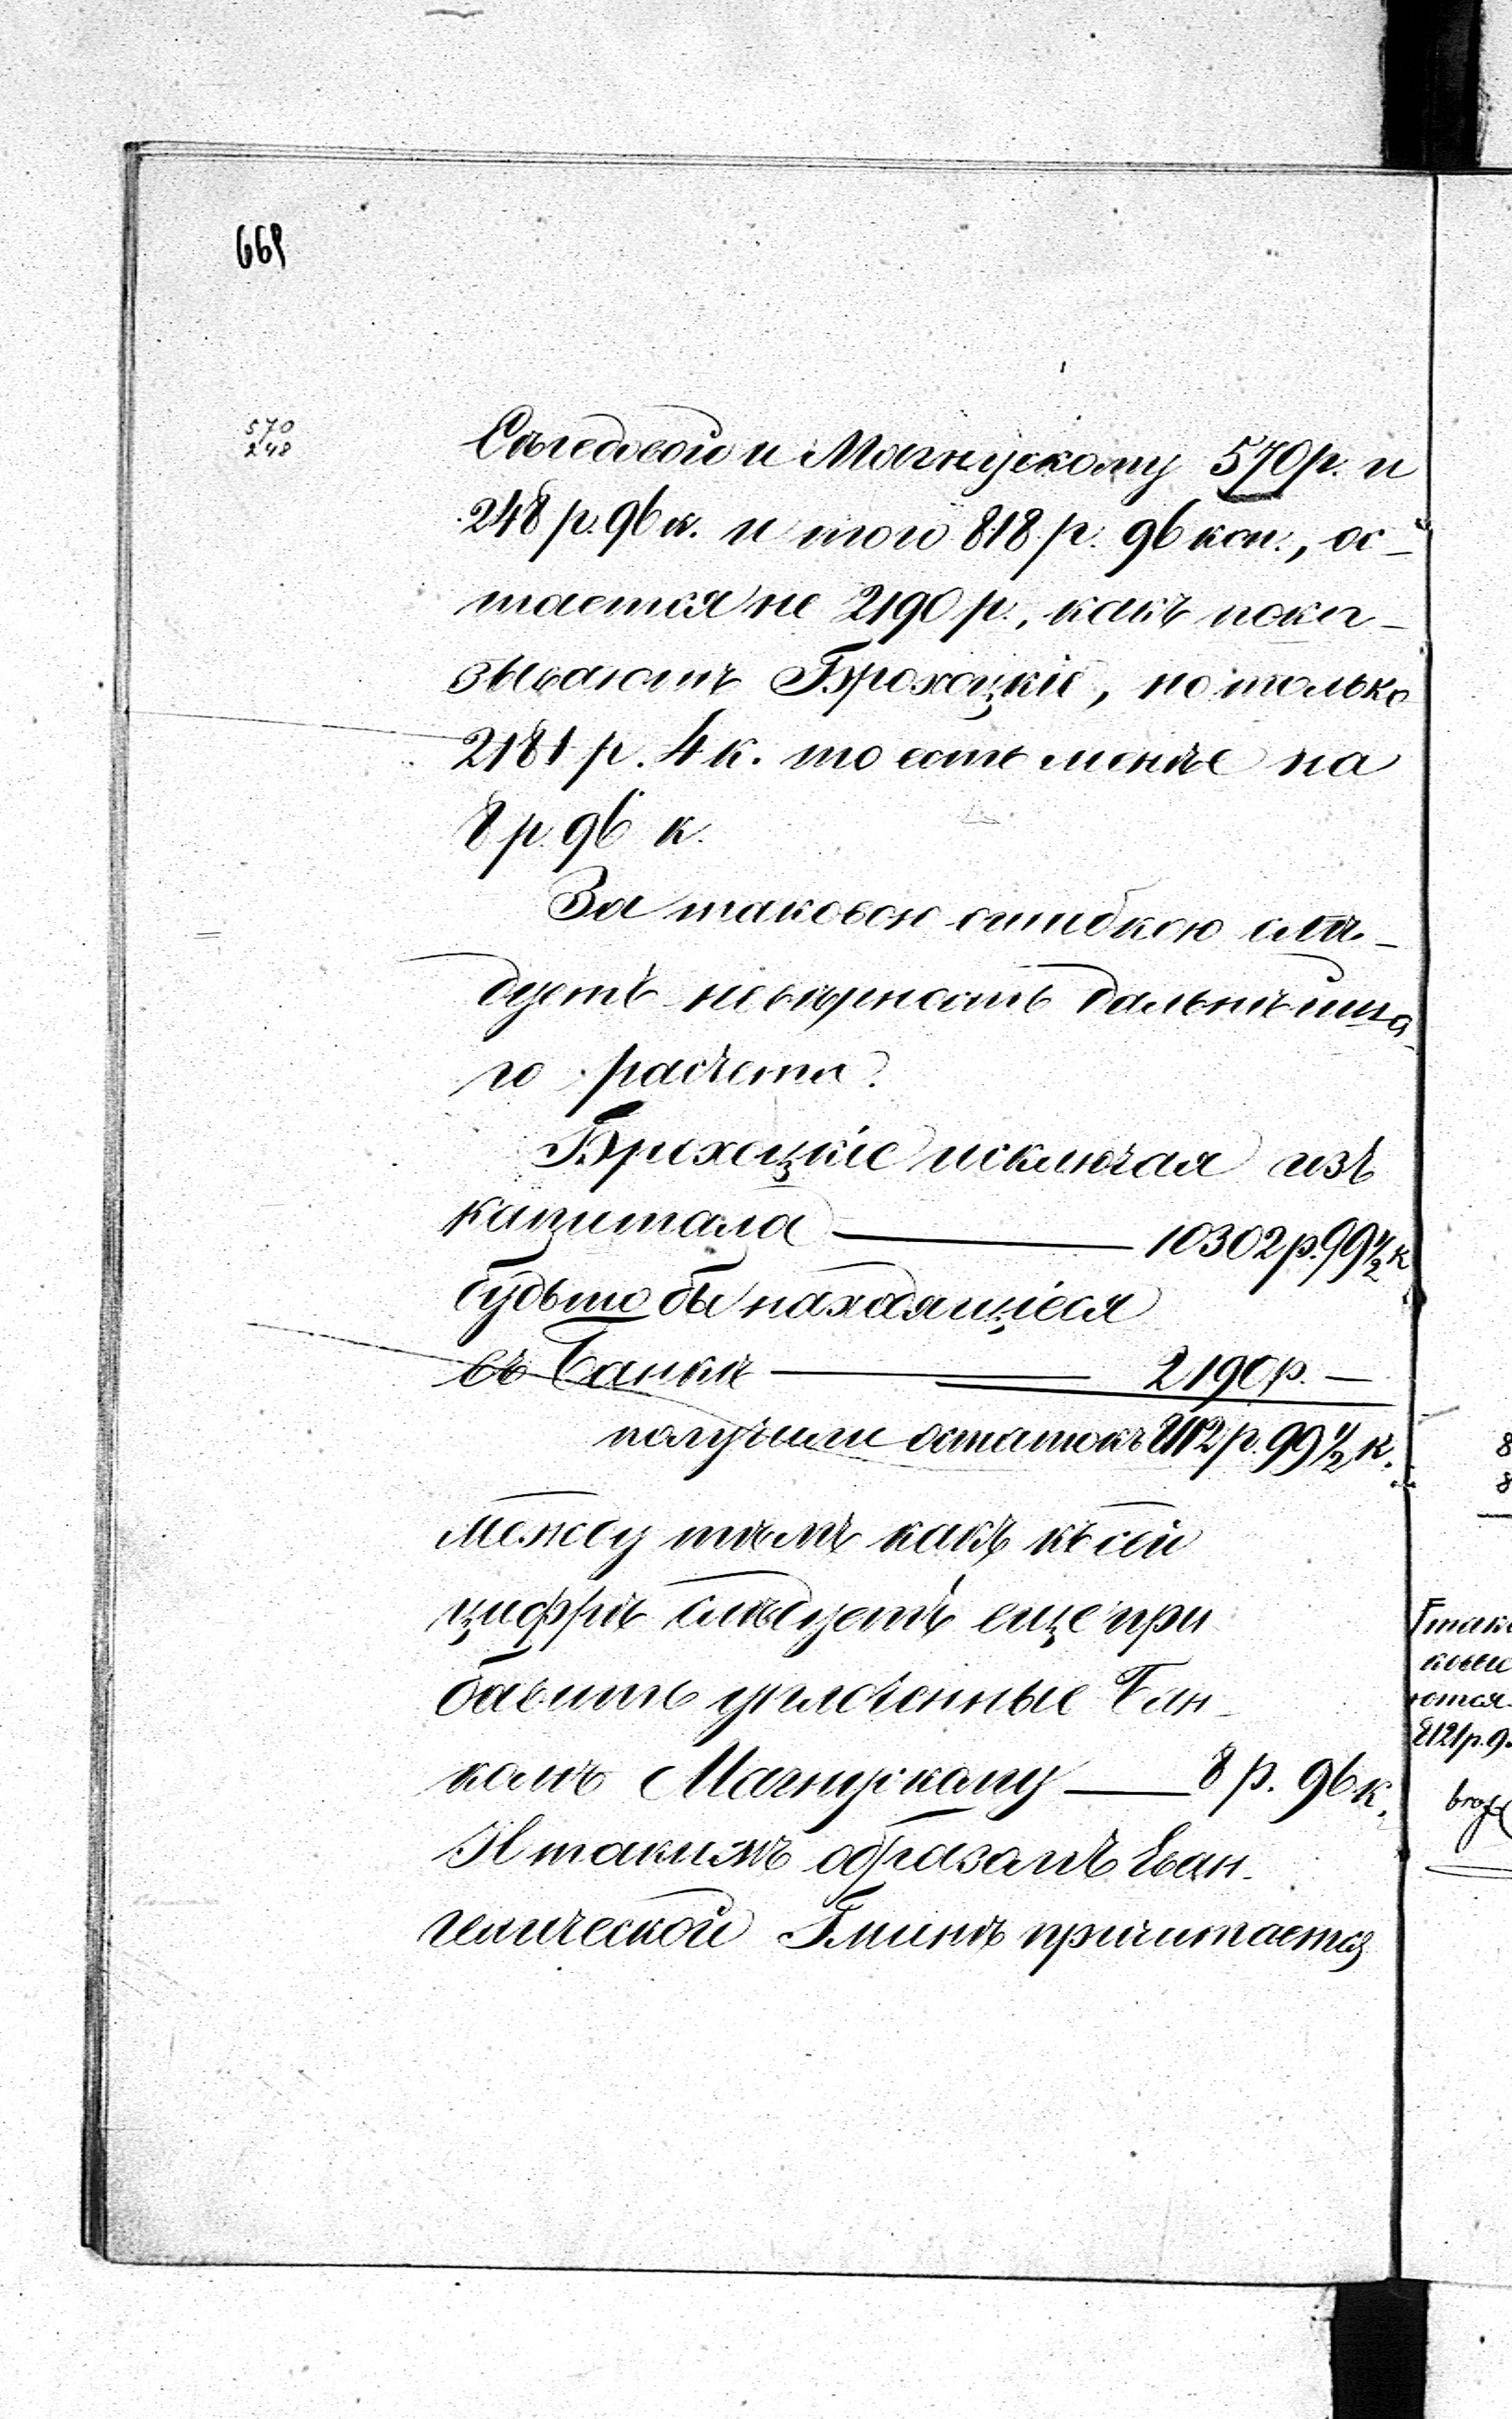 669
570
248
и Магнускому 570 р. и
248 р. 96 к. и того 818 р. 96 коп., ос-
тается не 2190 р., какъ пока-
зываютъ Брохоцкіе, но только
2181 р. 4 к. то есть менѣе на
8 р. 96 к.
За таковою ошибкою слѣ-
дуетъ невѣрность дальнѣйша-
го расчета.
Брохоцкіе исключая изъ
капитала — 10302 р. 99 1/2 к
будьто бы находящіеся
въ Банкѣ — 2190 р. —
получили остатокъ 8112 р. 99 1/2 к.
между тѣмъ какъ къ сей
цифрѣ слѣдуетъ еще при
бавить уплоченные Бан-
комъ Магнускому — 8 р. 96 к.
И такимъ образомъ Еван-
гелической Гминѣ причитается